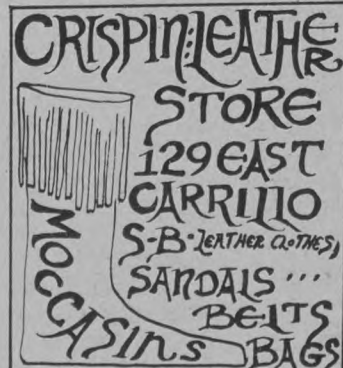 CRISPIN:LEATHER
STORE
129 EAST
CARRILLO
S-B-LEATHER CLOTHES,
SANDALS ...
BELTS
BAGS
MOCCASINS